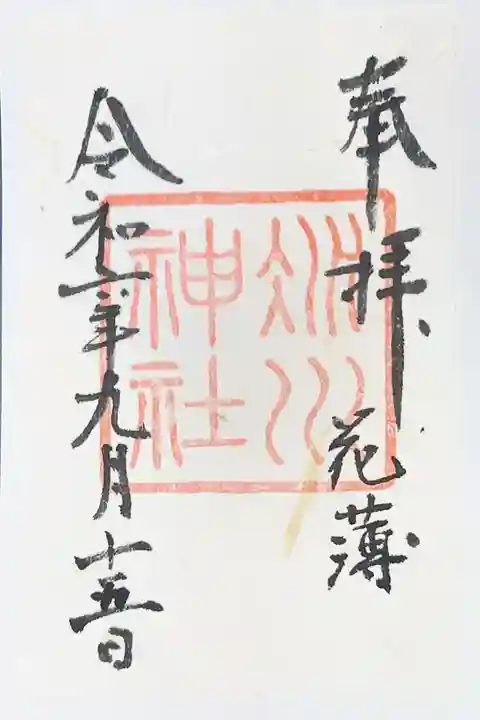 奉拝 花薄
冰川
神社
令和二年九月十五日